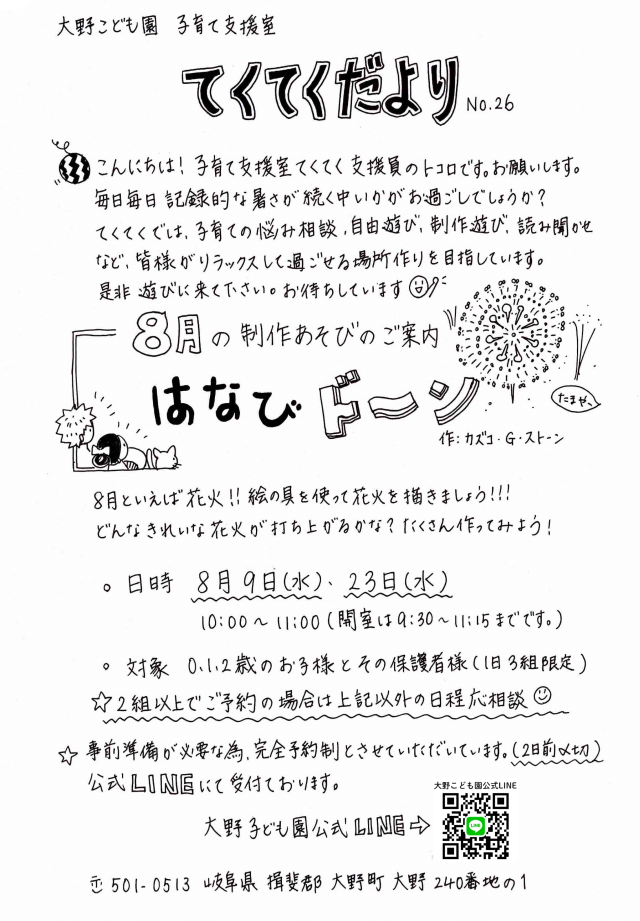 大野こども園 子育て支援室
てくてくだより No.26
こんにちは！子育て支援室てくてく支援員のトコロです。お願いします。
毎日毎日 記録的な暑さが続く中いかがお過ごしでしょうか？
てくてくでは、子育ての悩み相談、自由遊び、制作遊び、読み聞かせ
など、皆様がリラックスして過ごせる場所作りを目指しています。
是非 遊びに来て下さい。お待ちしています
8月の制作あそびのご案内
はなび ドーン
たまや〜
作：カズコ・G・ストーン
8月といえば花火!! 絵の具を使って花火を描きましょう!!!
どんなきれいな花火が打ち上がるかな？たくさん作ってみよう！
○ 日時 8月9日(水)、23日(水)
10:00〜11:00(開室は9:30〜11:15までです。)
○ 対象 0.1.2歳のお子様とその保護者様(1日3組限定)
☆2組以上でご予約の場合は上記以外の日程応相談
☆ 事前準備が必要な為、完全予約制とさせていただいています。(2日前〆切)
公式LINEにて受付ております。
大野こども園公式LINE
大野子ども園公式LINE⇨
LINE
〒501-0513 岐阜県 揖斐郡 大野町 大野 240番地の1